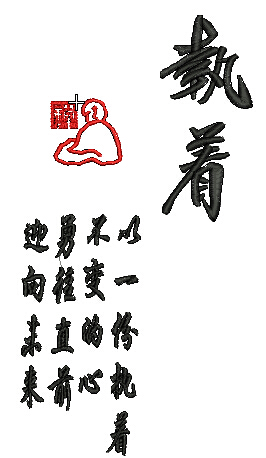 执着
以一份执着
不变的心
勇往直前
迎向未来